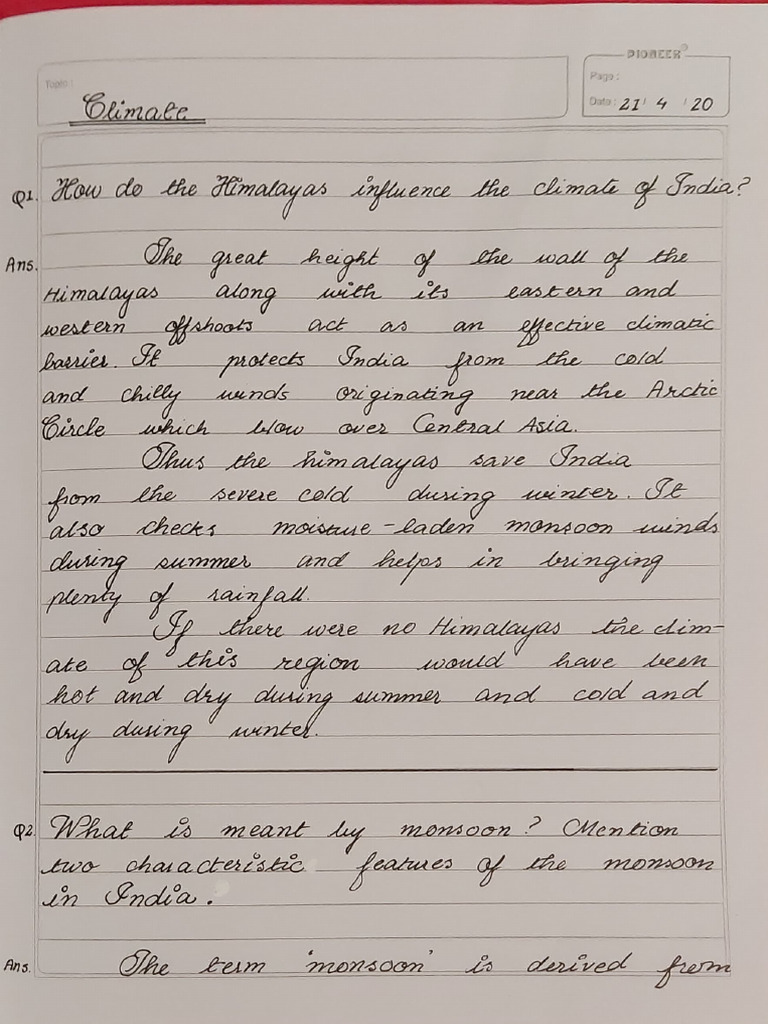 PIONEER
Topic :
Page :
Climate
Date : 21 / 4 / 20
Q1. How do the Himalayas influence the climate of India?
Ans. The great height of the wall of the
Himalayas along with its eastern and
western offshoots act as an effective climatic
barrier. It protects India from the cold
and chilly winds originating near the Arctic
Circle which blow over Central Asia.
Thus the himalayas save India
from the severe cold during winter. It
also checks moisture-laden monsoon winds
during summer and helps in bringing
plenty of rainfall.
If there were no Himalayas the clim-
ate of this region would have been
hot and dry during summer and cold and
dry during winter.
Q2. What is meant by monsoon? Mention
two characteristic features of the monsoon
in India.
Ans. The term 'monsoon' is derived from